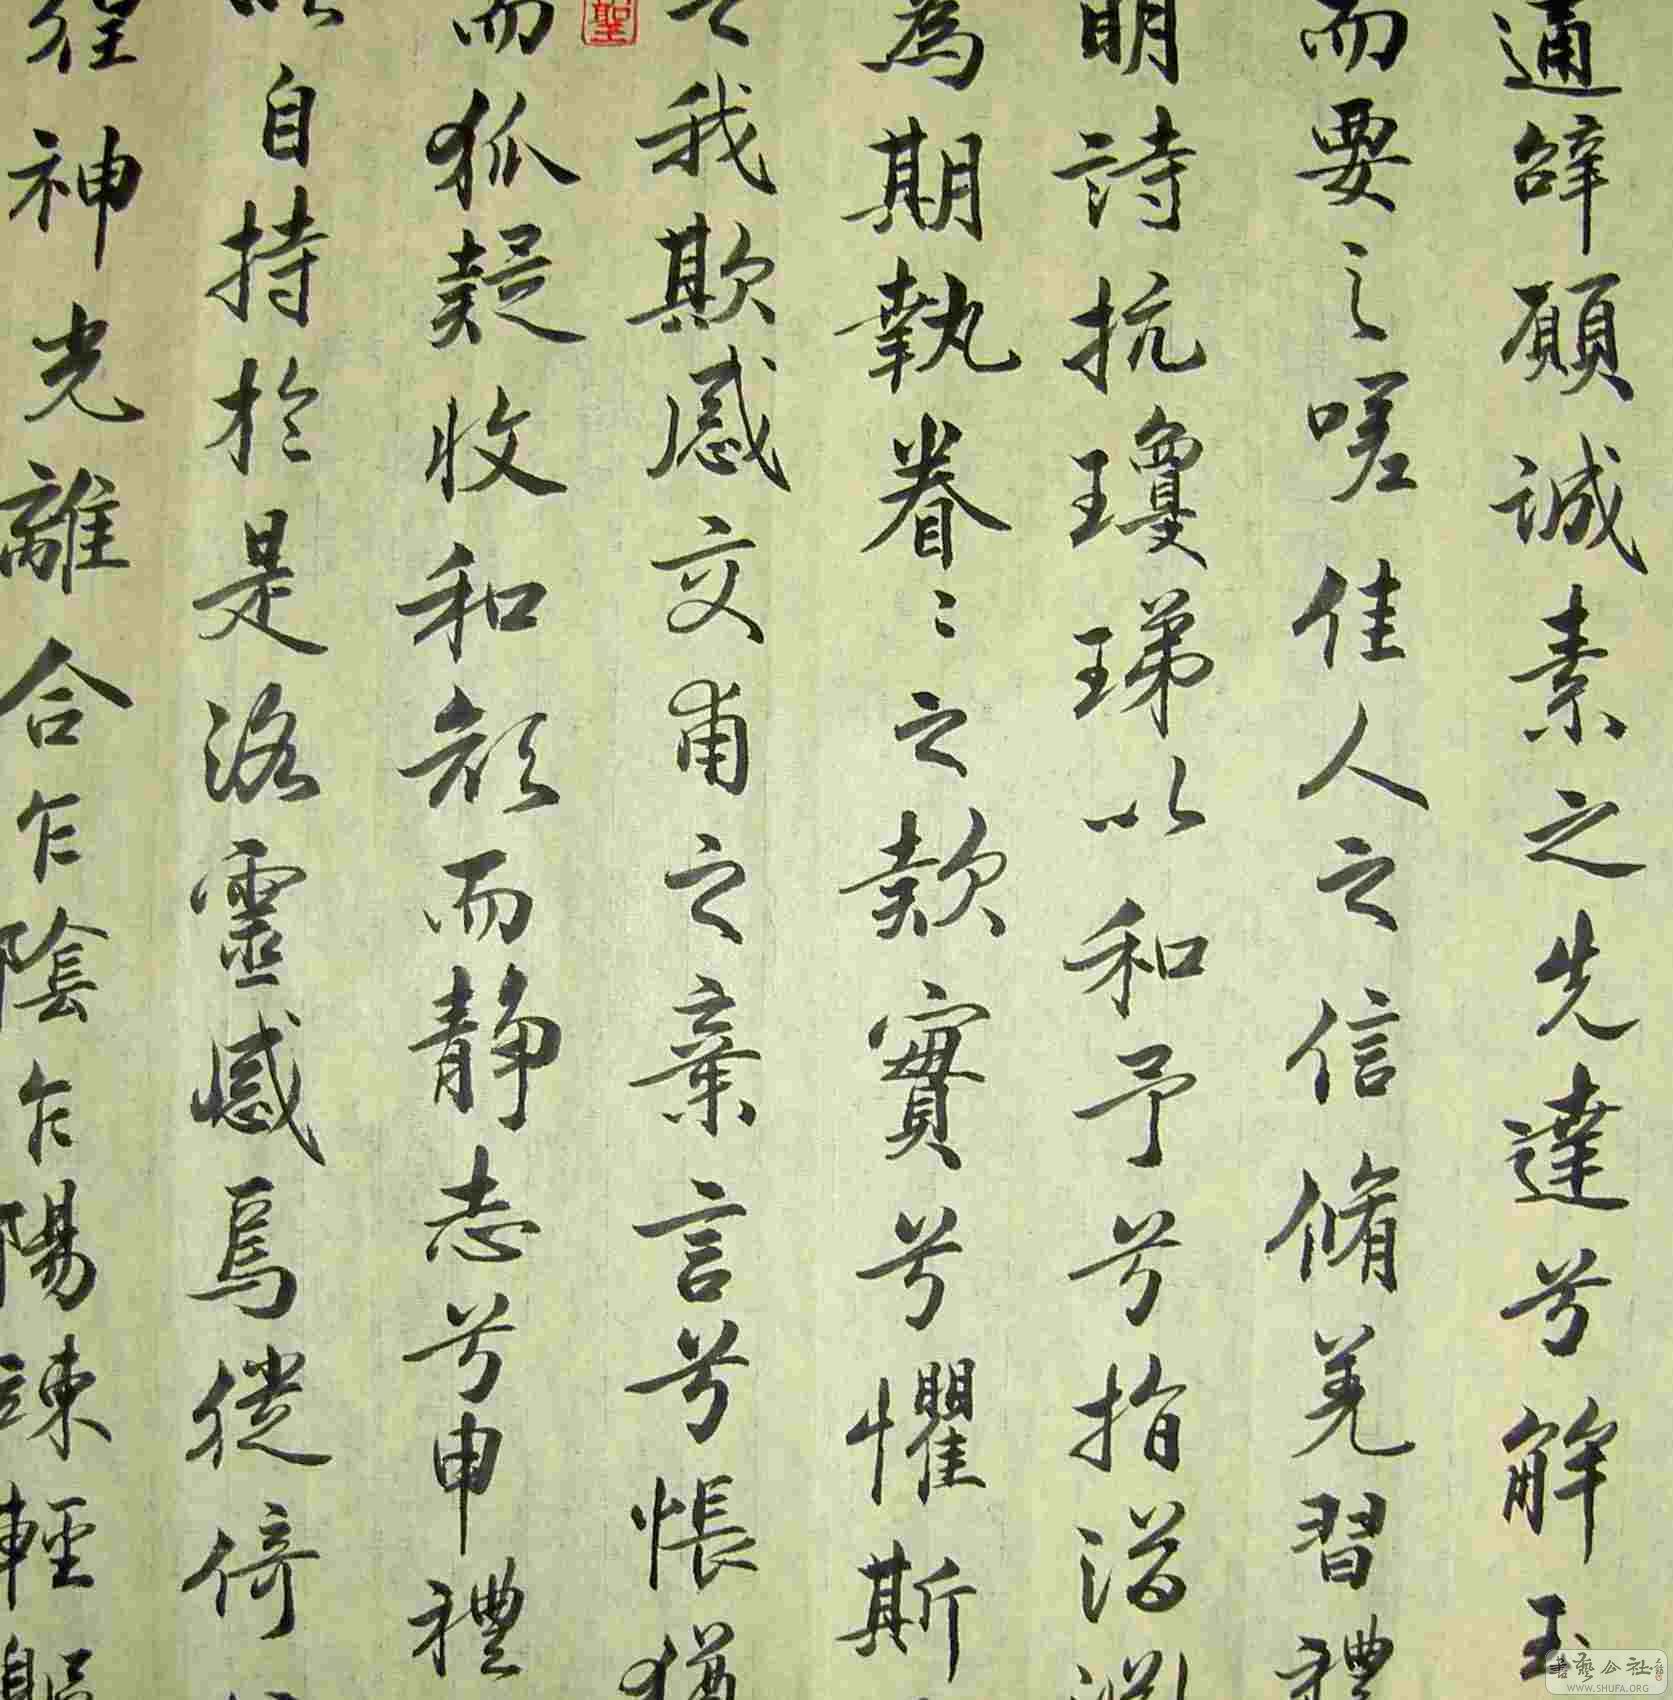 通辭願誠素之先達兮解玉
而要之嗟佳人之信脩羌習禮
明詩抗瓊珶以和予兮指潛淵
為期執眷〻之款實兮懼斯
之我欺感交甫之棄言兮悵猶
而狐疑收和顏而静志兮申禮
以自持於是洛靈感焉徙倚
徨神光離合乍陰乍陽竦輕軀
聖
書藝公社
WWW.SHUFA.ORG